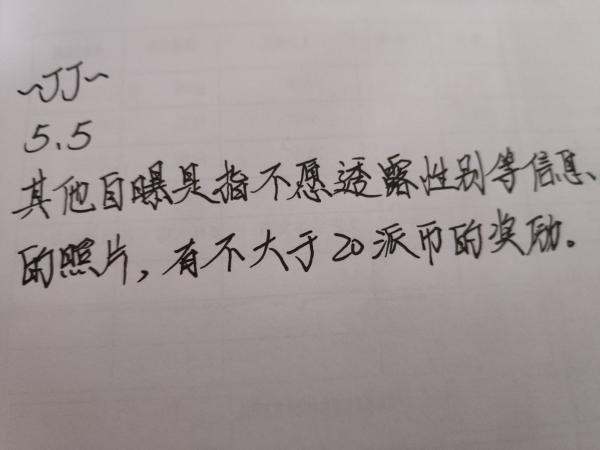 ~JJ~
5.5
其他自曝是指不愿透露性别等信息
的照片，有不大于20派币的奖励。